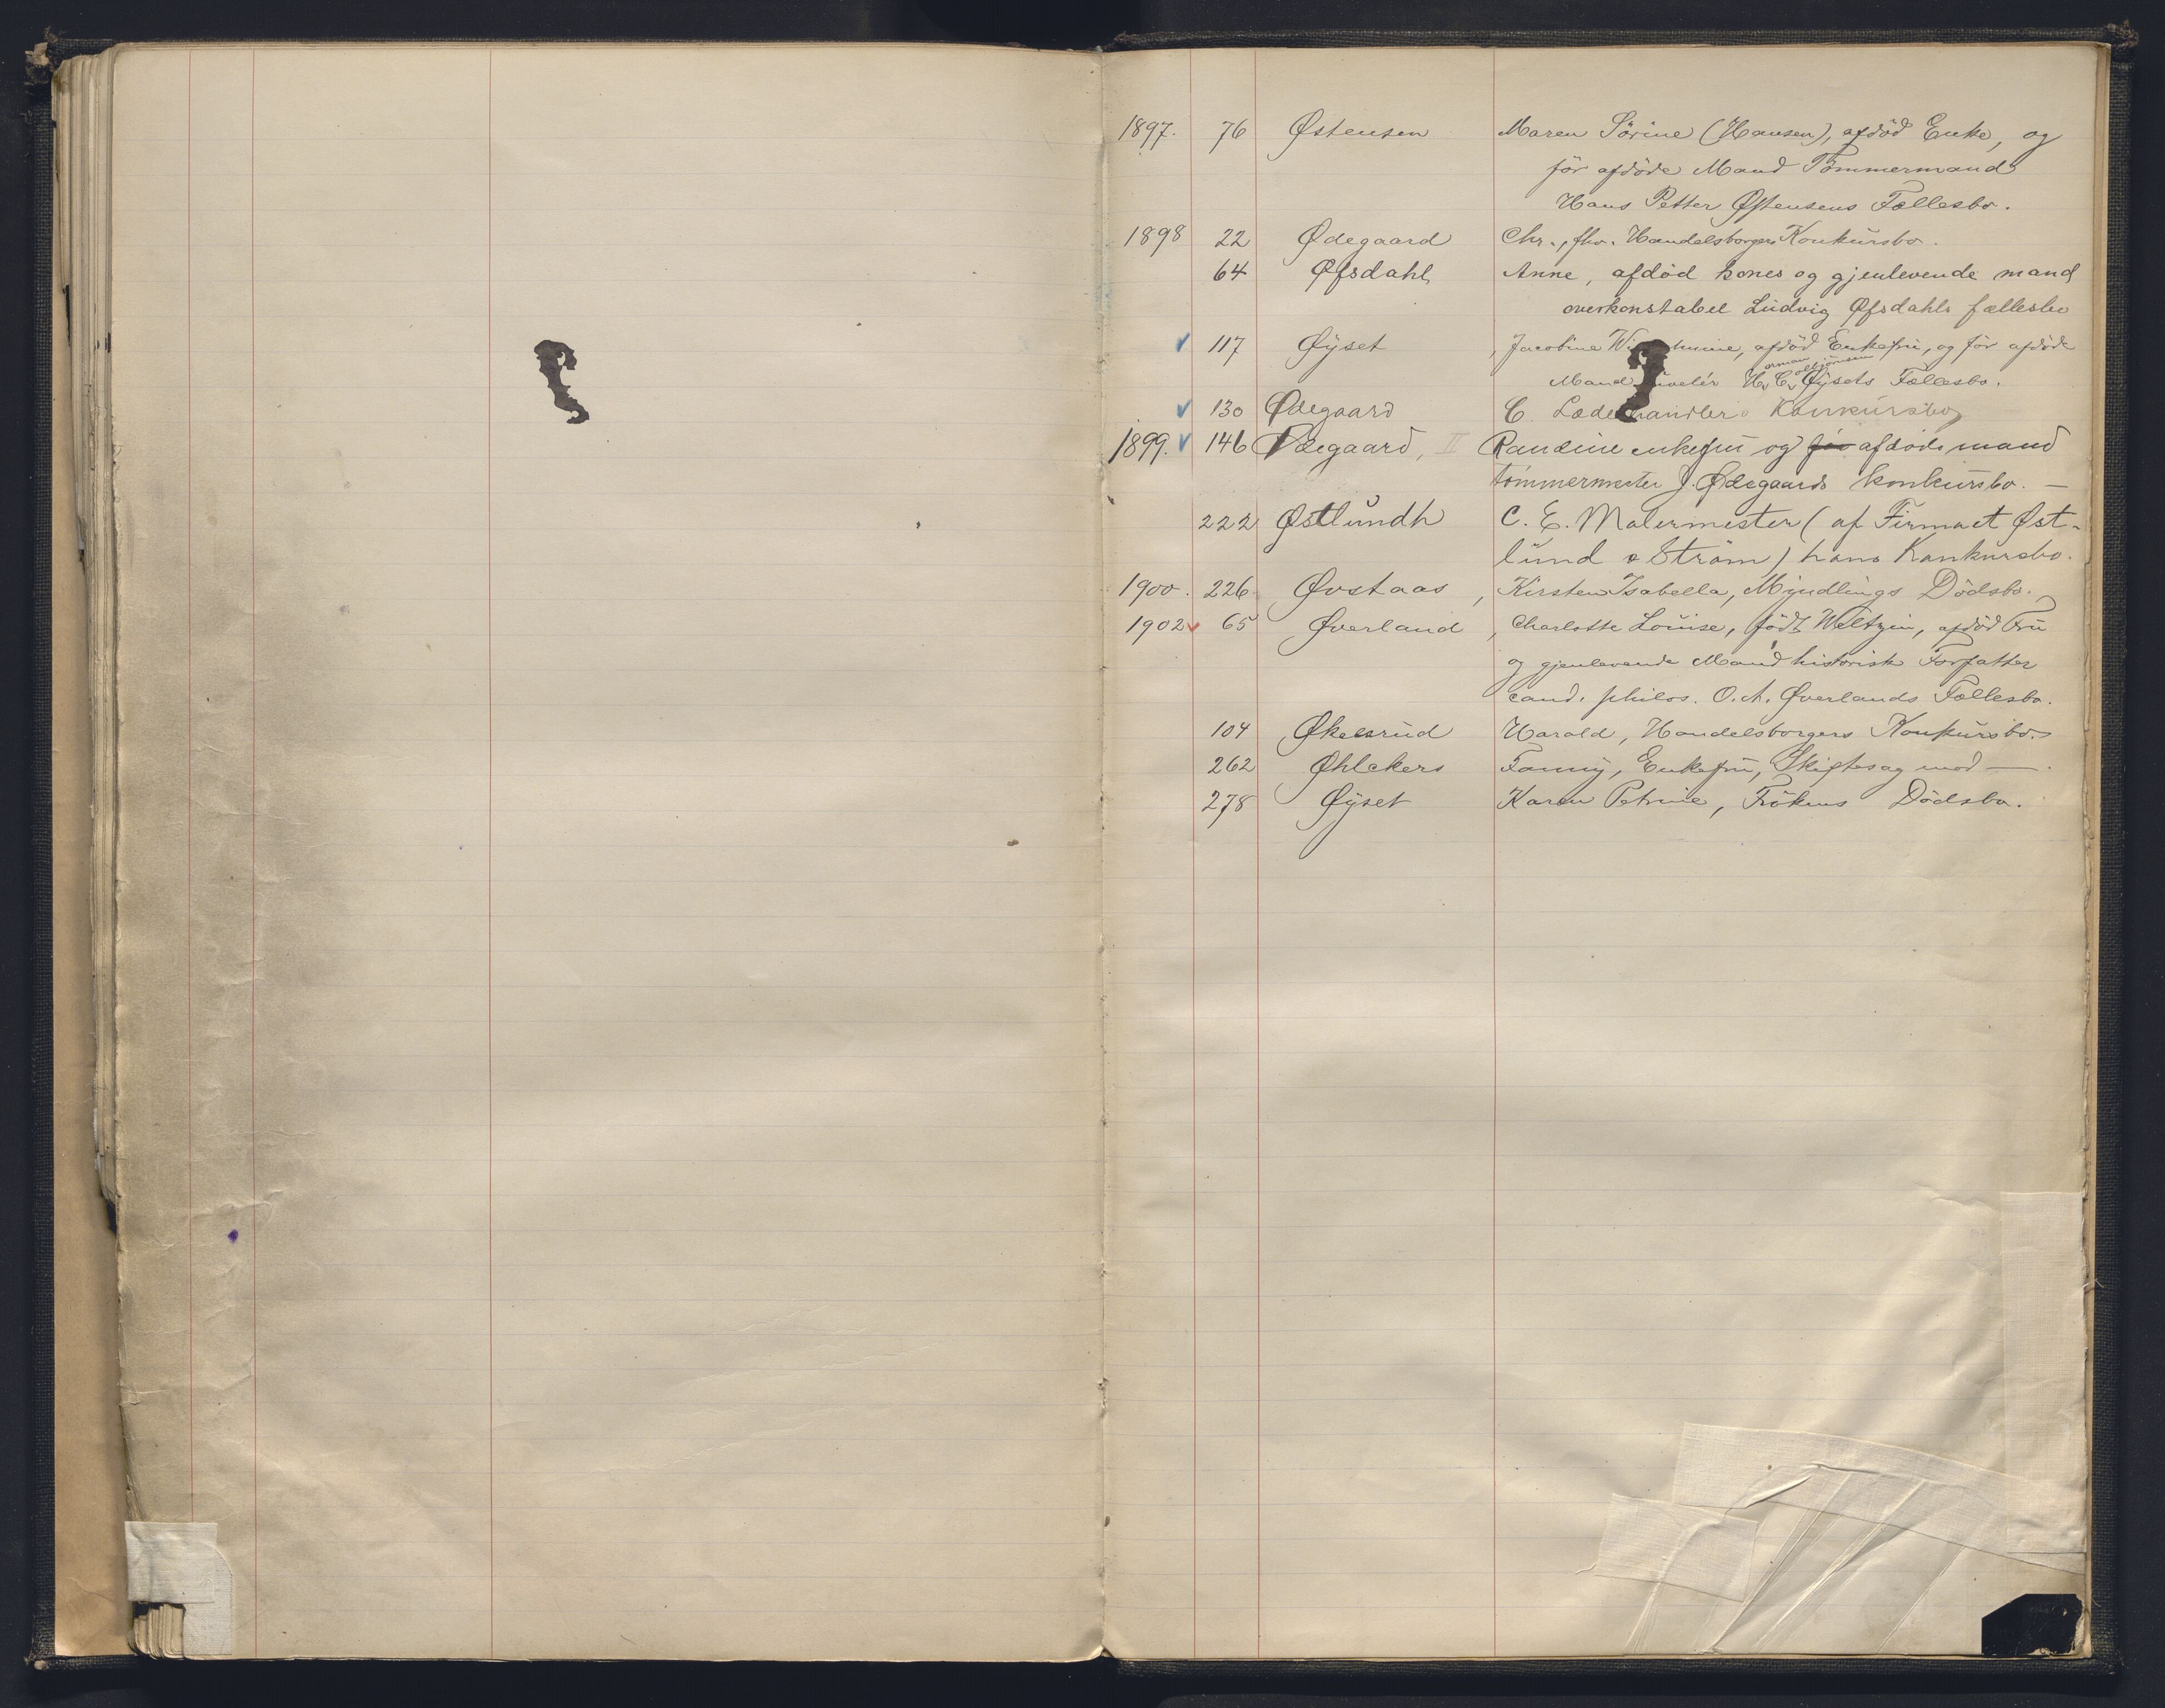 1897. 76 Østensen Maren Sörine (Hansen), afdöd Enke, og
för afdöde Mand Tömmermand
Hans Petter Østensens Fællesbo.
1898 22 Ødegaard Chr., fhv. Handelsborgers Konkursbo.
64 Øfsdahl, Anne, afdöd kones og gjenlevende mand
overkonstabel Ludvig Øfsdahls fællesbo
117 Øyset, Jacobine afdöd Enkefru, og för afdöde
orman olbjörnsen
Mand H. C. Øysets Fællesbo.
130 Ødegaard C. Konkursbo
1899. 146 Ødegaard, II Randine enkefru og för afdöde mand
tömmermester J. Ødegaards konkursbo. —
222 Østlundh C. E. Malermester (af Firmaet Øst-
lund & Ström) hans Konkursbo.
1900. 226 Øvstaas, Kirsten Isabella, Myndlings Dödsbo.
1902 65 Øverland, Charlotte Louise, född Weltzin, afdöd Fru
og gjenlevende Mand historisk Forfatter
cand. philos. O. A. Øverlands Fællesbo.
104 Økelsrud Harald, Handelsborgers Konkursbo.
262 Øhlckers Fanny, Enkefru, Skiftesag mod —.
278 Øyset Karen Petrine, Frökens Dödsbo.